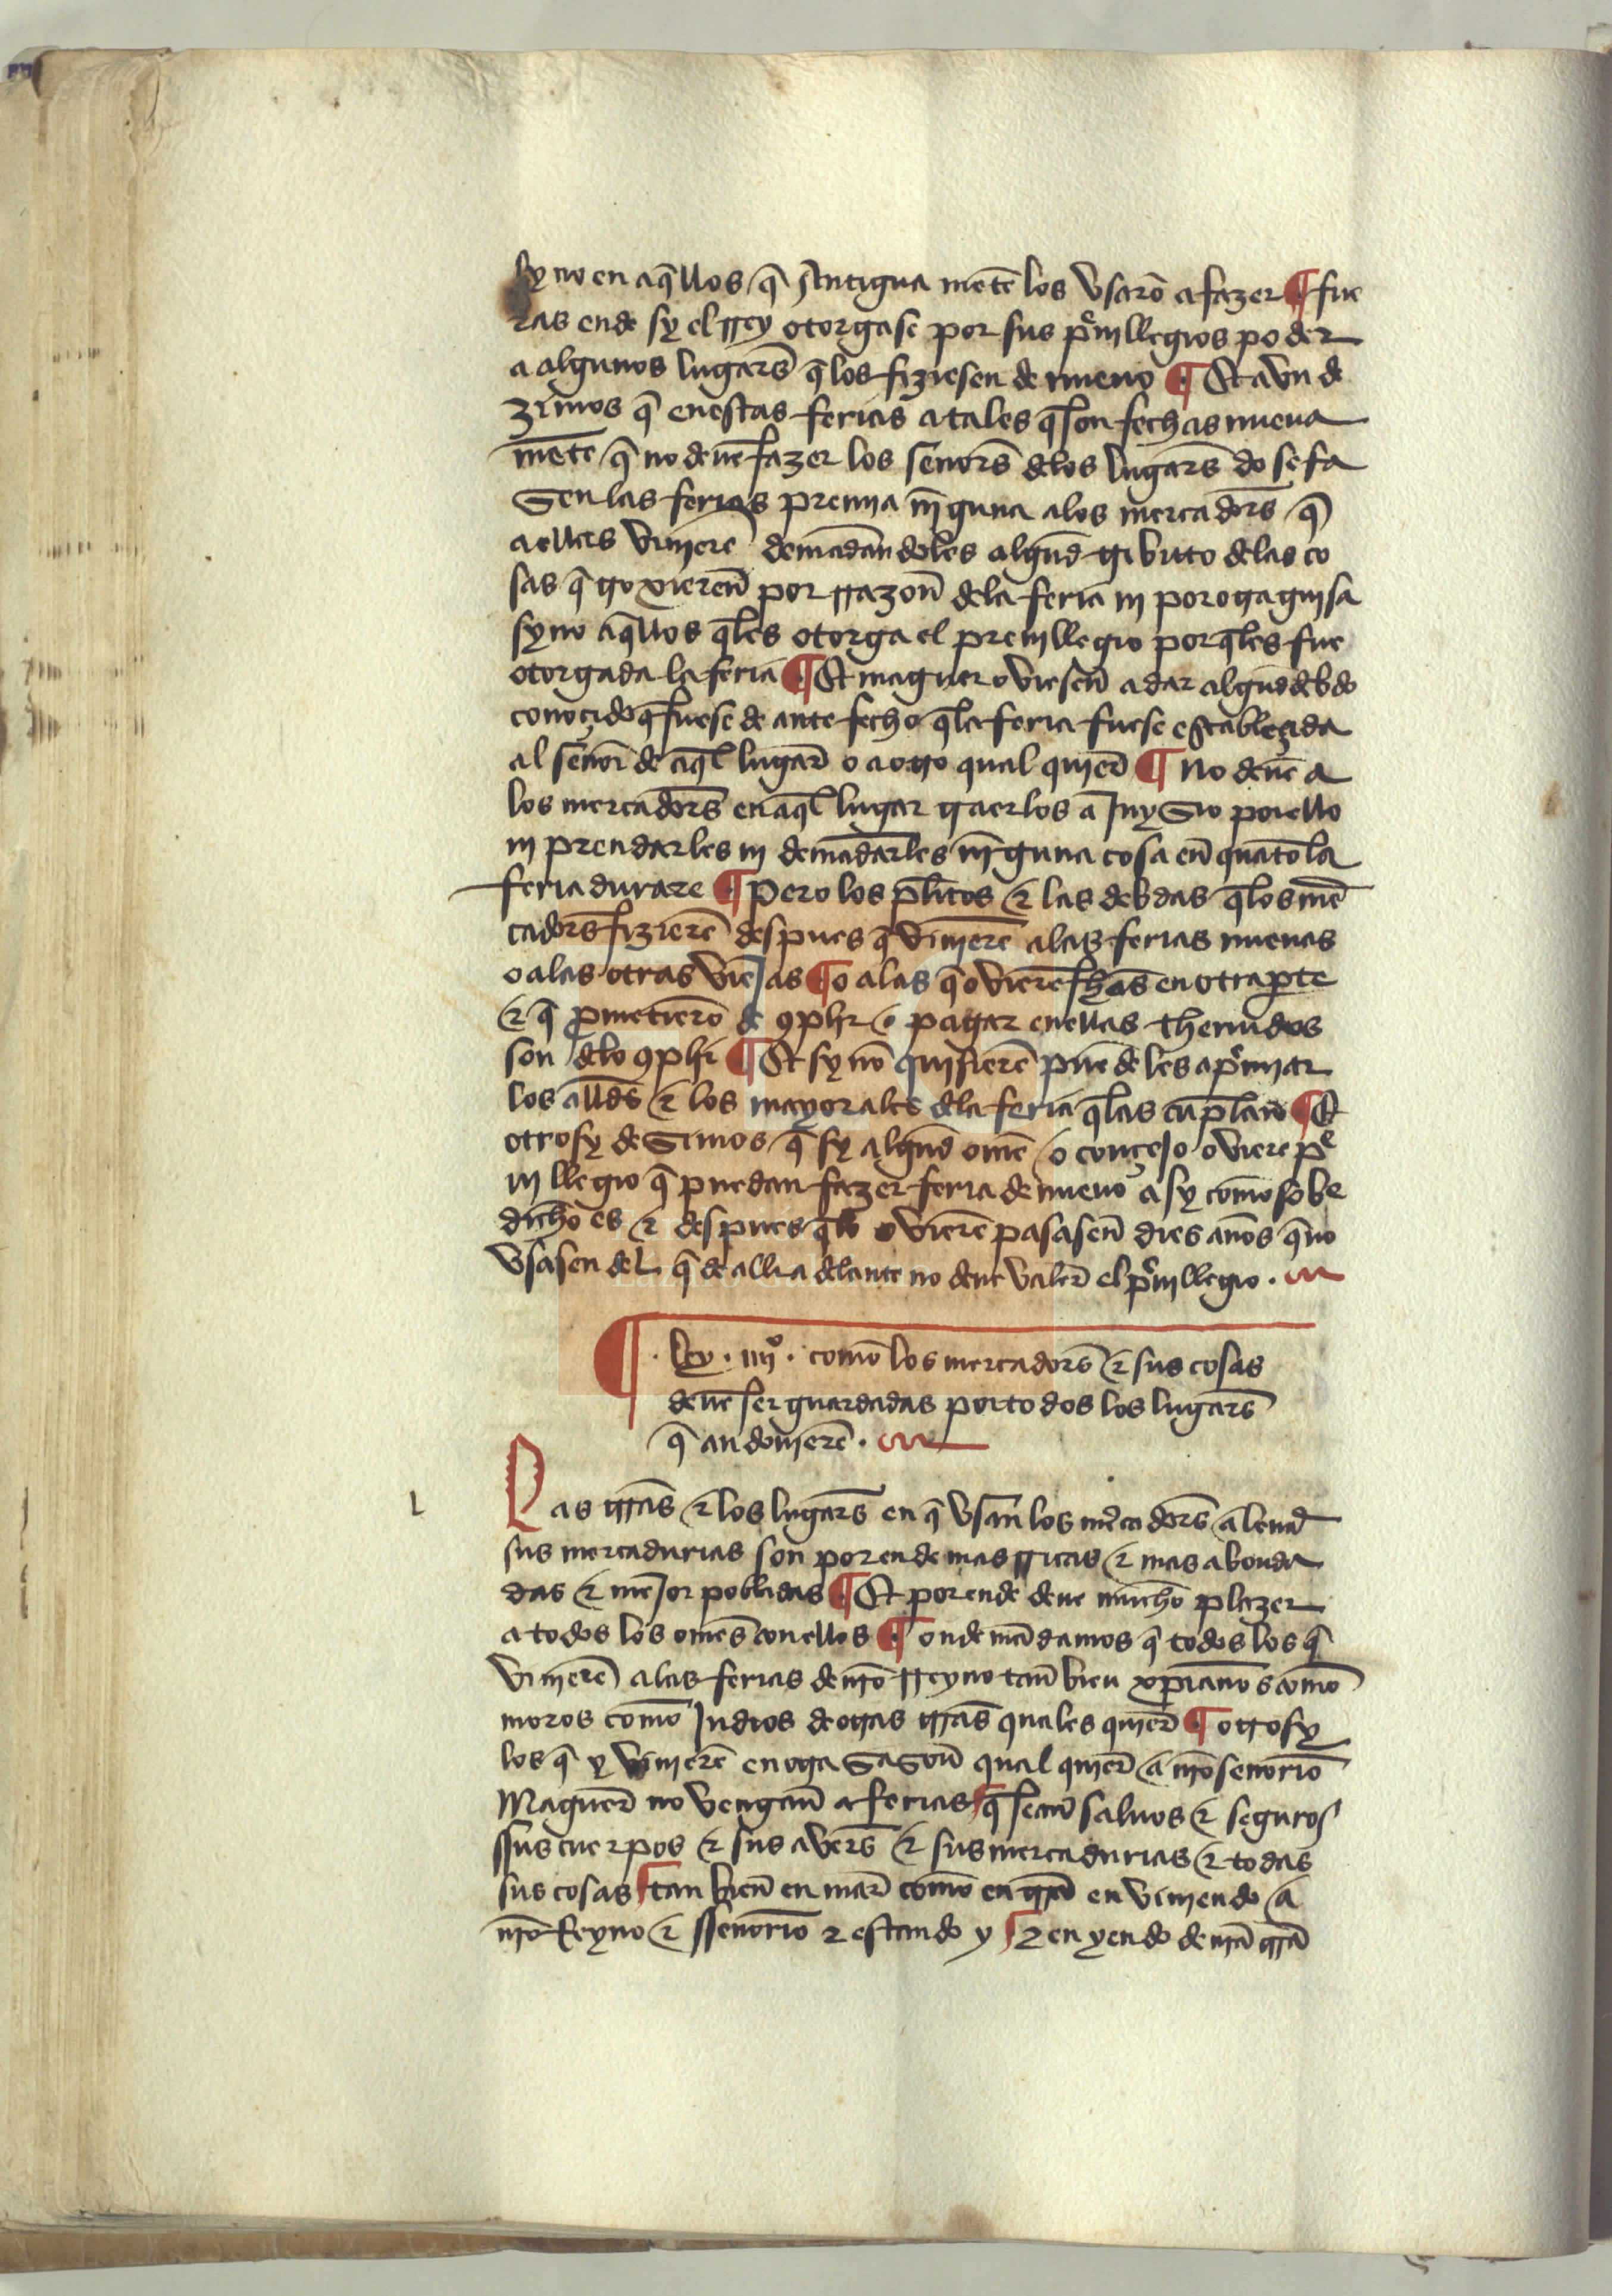 syno en aq̄llos q̄ Antigua mēte los vsarō a fazer ¶ fue
ras ende sy el rrey otorgase por sus p̄uillegios poder
a algunos lugars̄ q̄ los fiziesen de nueuo ¶ Et avn de
zimos q̄ en estas ferias atales q̄ son fechas nueua
mēte q̄ no deuē fazer los señors̄ delos lugars̄ do se fa
Sen las ferias premia nīguna alos mercadors̄ q̄
a ellas vinierē demādandoles algūd tributo delas co
sas q̄ troxierē por rrazon̄ dela feria ni por otra guisa
syno aq̄llos q̄les otorga el preuillegio por q̄les fue
otorgada la feria ¶ Et maguer oviesen̄ a dar algūd debdo
conoçido q̄ fuese de ante fecho q̄ la feria fuese establezida
al señor de aq̄l lugar̄ o a otro qual quier̄ ¶ No deuē a
los mercadors̄ en aq̄l lugar traerlos a Juysio por ello
ni prendarles ni demādarles nīguna cosa en̄ quāto la
feria durare ¶ pero los pl̄itos & las debdas q̄ los mer̄
cadors̄ fizierē despues q̄ vinierē alas ferias nueuas
o alas otras vieJas ¶ o alas q̄ ovierē fh̄as en otra pte
& q̄ p̄metierō de 9plir o pagar en ellas thenudos
son delo 9plir ¶ Et sy nō quisierē puedēles ap̄miar
los alldes̄ & los mayorales dela feria q̄ las cūplan̄ ¶ Et
otrosy deSimos q̄ sy algūd ome o conçejo oviere p̄
uillegio q̄ puedan fazer feria de nueuo asy como sobre
dicho es & despues q̄ lo ovierē pasasen̄ dies años q̄ no
vsasen del q̄ de alli adelante no deue valer̄ el p̄uillegio .
¶ . ley . iiijº . como los mercadors̄ & sus cosas
deuē ser guardadas por todos los lugars̄
q̄ andouierē .
Las trr̄as & los lugars̄ en q̄ vsan los mercadors̄ a leuar̄
sus mercadurias son por ende mas rricas & mas abonda
das & meJor pobladas ¶ Et por ende deue mucho plazer
a todos los omes̄ con ellos ¶ onde mādamos q̄ todos los q̄
vinierē alas ferias de nr̄o rreyno tan̄ bien xp̄ianos como
moros como Judios de otras trr̄as quales quier̄ ¶ otrosy
los q̄ y vinierē en otra SaSon̄ qual quier̄ a nr̄o señorio
Maguer̄ no vengan̄ a ferias q̄ sean̄ saluos & seguros
ssus cuerpos & sus avers̄ & sus mercadurias & todas
sus cosas tan bien̄ en mar̄ como en trr̄a en viniendo a
nr̄o Reyno & sseñorio & estando y & en yendo de nr̄a trr̄a